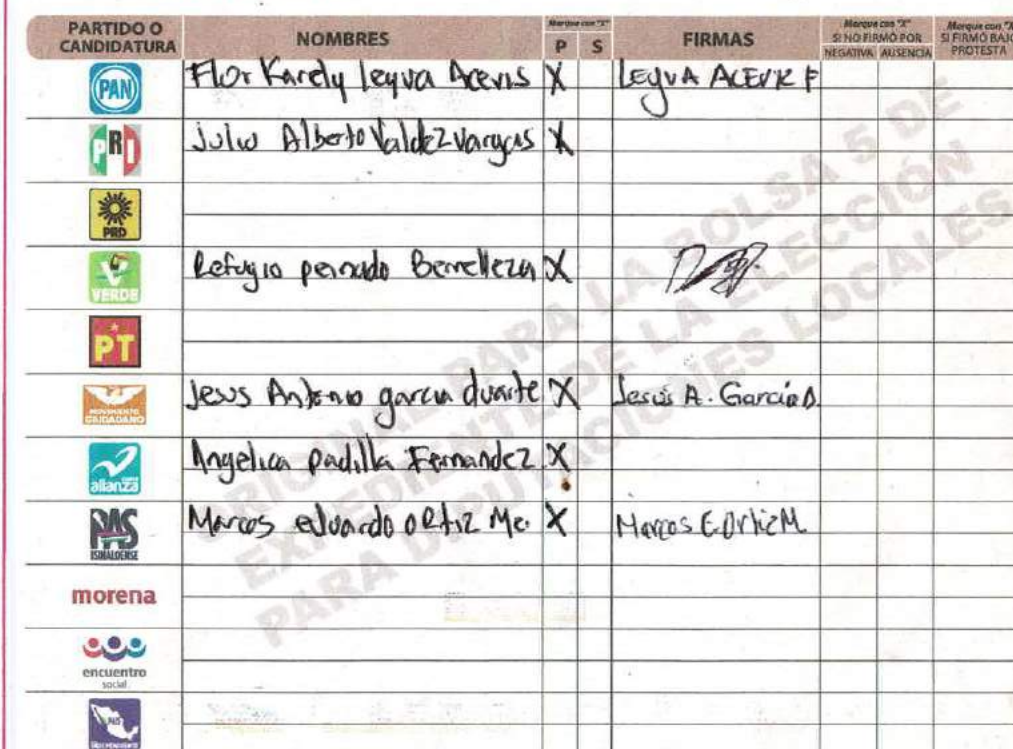 PARTIDO O CANDIDATURA NOMBRES Marque con "X" P S FIRMAS Marque con "X" SI NO FIRMÓ POR NEGATIVA AUSENCIA Marque con "X" SI FIRMÓ BAJO PROTESTA
PAN Flor Karely leyva X LEYVA F
PRI Julio Alberto Valdez vargas X
PRD
VERDE Refugio X
PT
MOVIMIENTO CIUDADANO Jesus Antonio garcia duarte X Jesús A. García D.
alianza Angelica padilla Fernandez X
PAS SINALOENSE Marcos eduardo ORtiz Me. X Marcos E. Ortiz M
morena
encuentro social
PAIS
ORIGINAL PARA LA BOLSA 5 DE
EXPEDIENTE DE LA ELECCIÓN
PARA DIPUTACIONES LOCALES